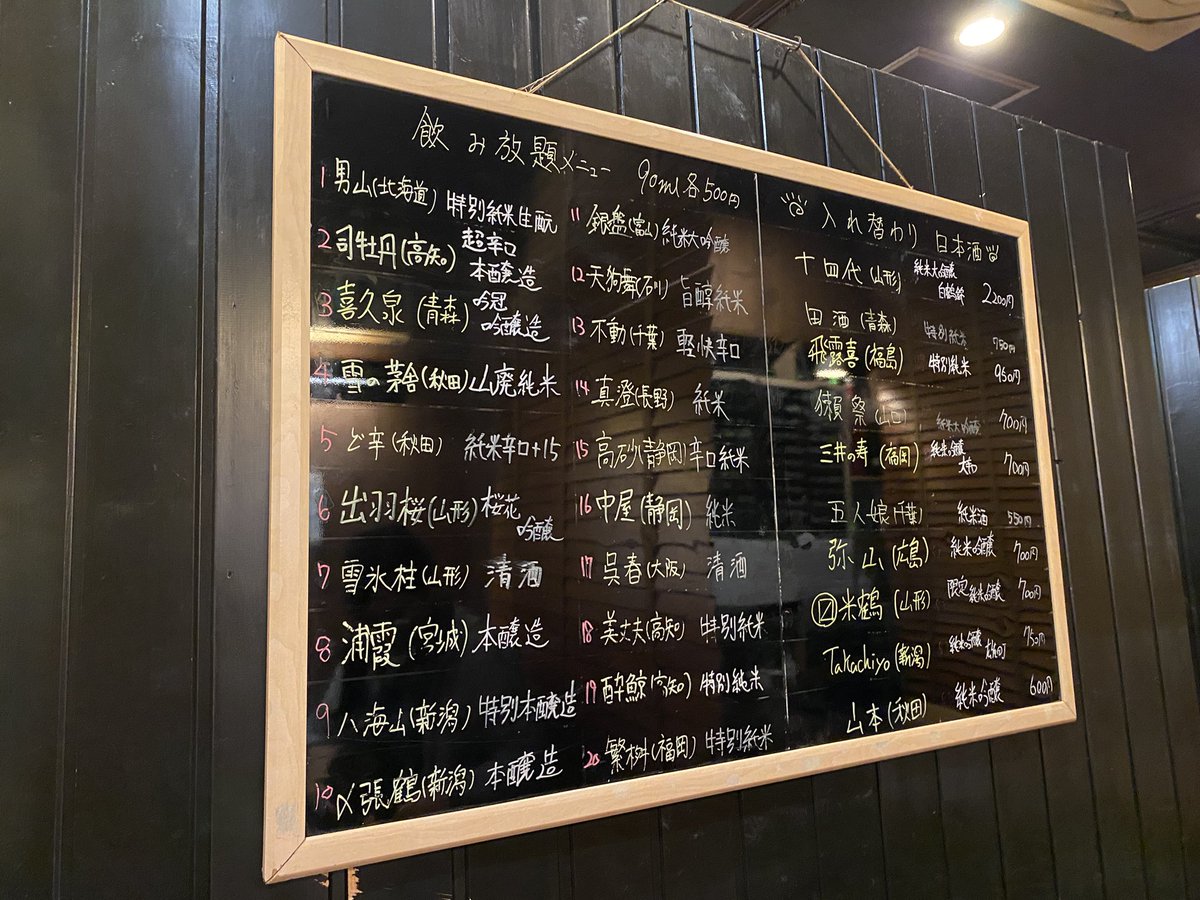 飲み放題メニュー 90ml各500円
1 男山(北海道) 特別純米生酛
2 司牡丹(高知) 超辛口 本醸造
3 喜久泉(青森) 吟冠 吟醸造
4 雪の茅舎(秋田) 山廃純米
5 ど辛(秋田) 純米辛口+15
6 出羽桜(山形) 桜花 吟醸
7 雪氷柱(山形) 清酒
8 浦霞(宮城) 本醸造
9 八海山(新潟) 特別本醸造
10 〆張鶴(新潟) 本醸造
11 銀盤(富山) 純米大吟醸
12 天狗舞(石川) 旨醇純米
13 不動(千葉) 軽快辛口
14 真澄(長野) 純米
15 高砂(静岡) 辛口純米
16 中屋(静岡) 純米
17 呉春(大阪) 清酒
18 美丈夫(高知) 特別純米
19 酔鯨(高知) 特別純米
20 繁桝(福岡) 特別純米
入れ替わり 日本酒
十四代(山形) 純米大吟醸 白鶴錦 2200円
田酒(青森) 特別純米 750円
飛露喜(福島) 特別純米 950円
獺祭(山口) 純米大吟醸 700円
三井の寿(福岡) 純米吟醸 700円
五人娘(千葉) 純米酒 550円
弥山(広島) 純米吟醸 700円
米鶴(山形) 限定純米吟醸 700円
Takachiyo(新潟) 純米吟醸 750円
山本(秋田) 純米吟醸 600円